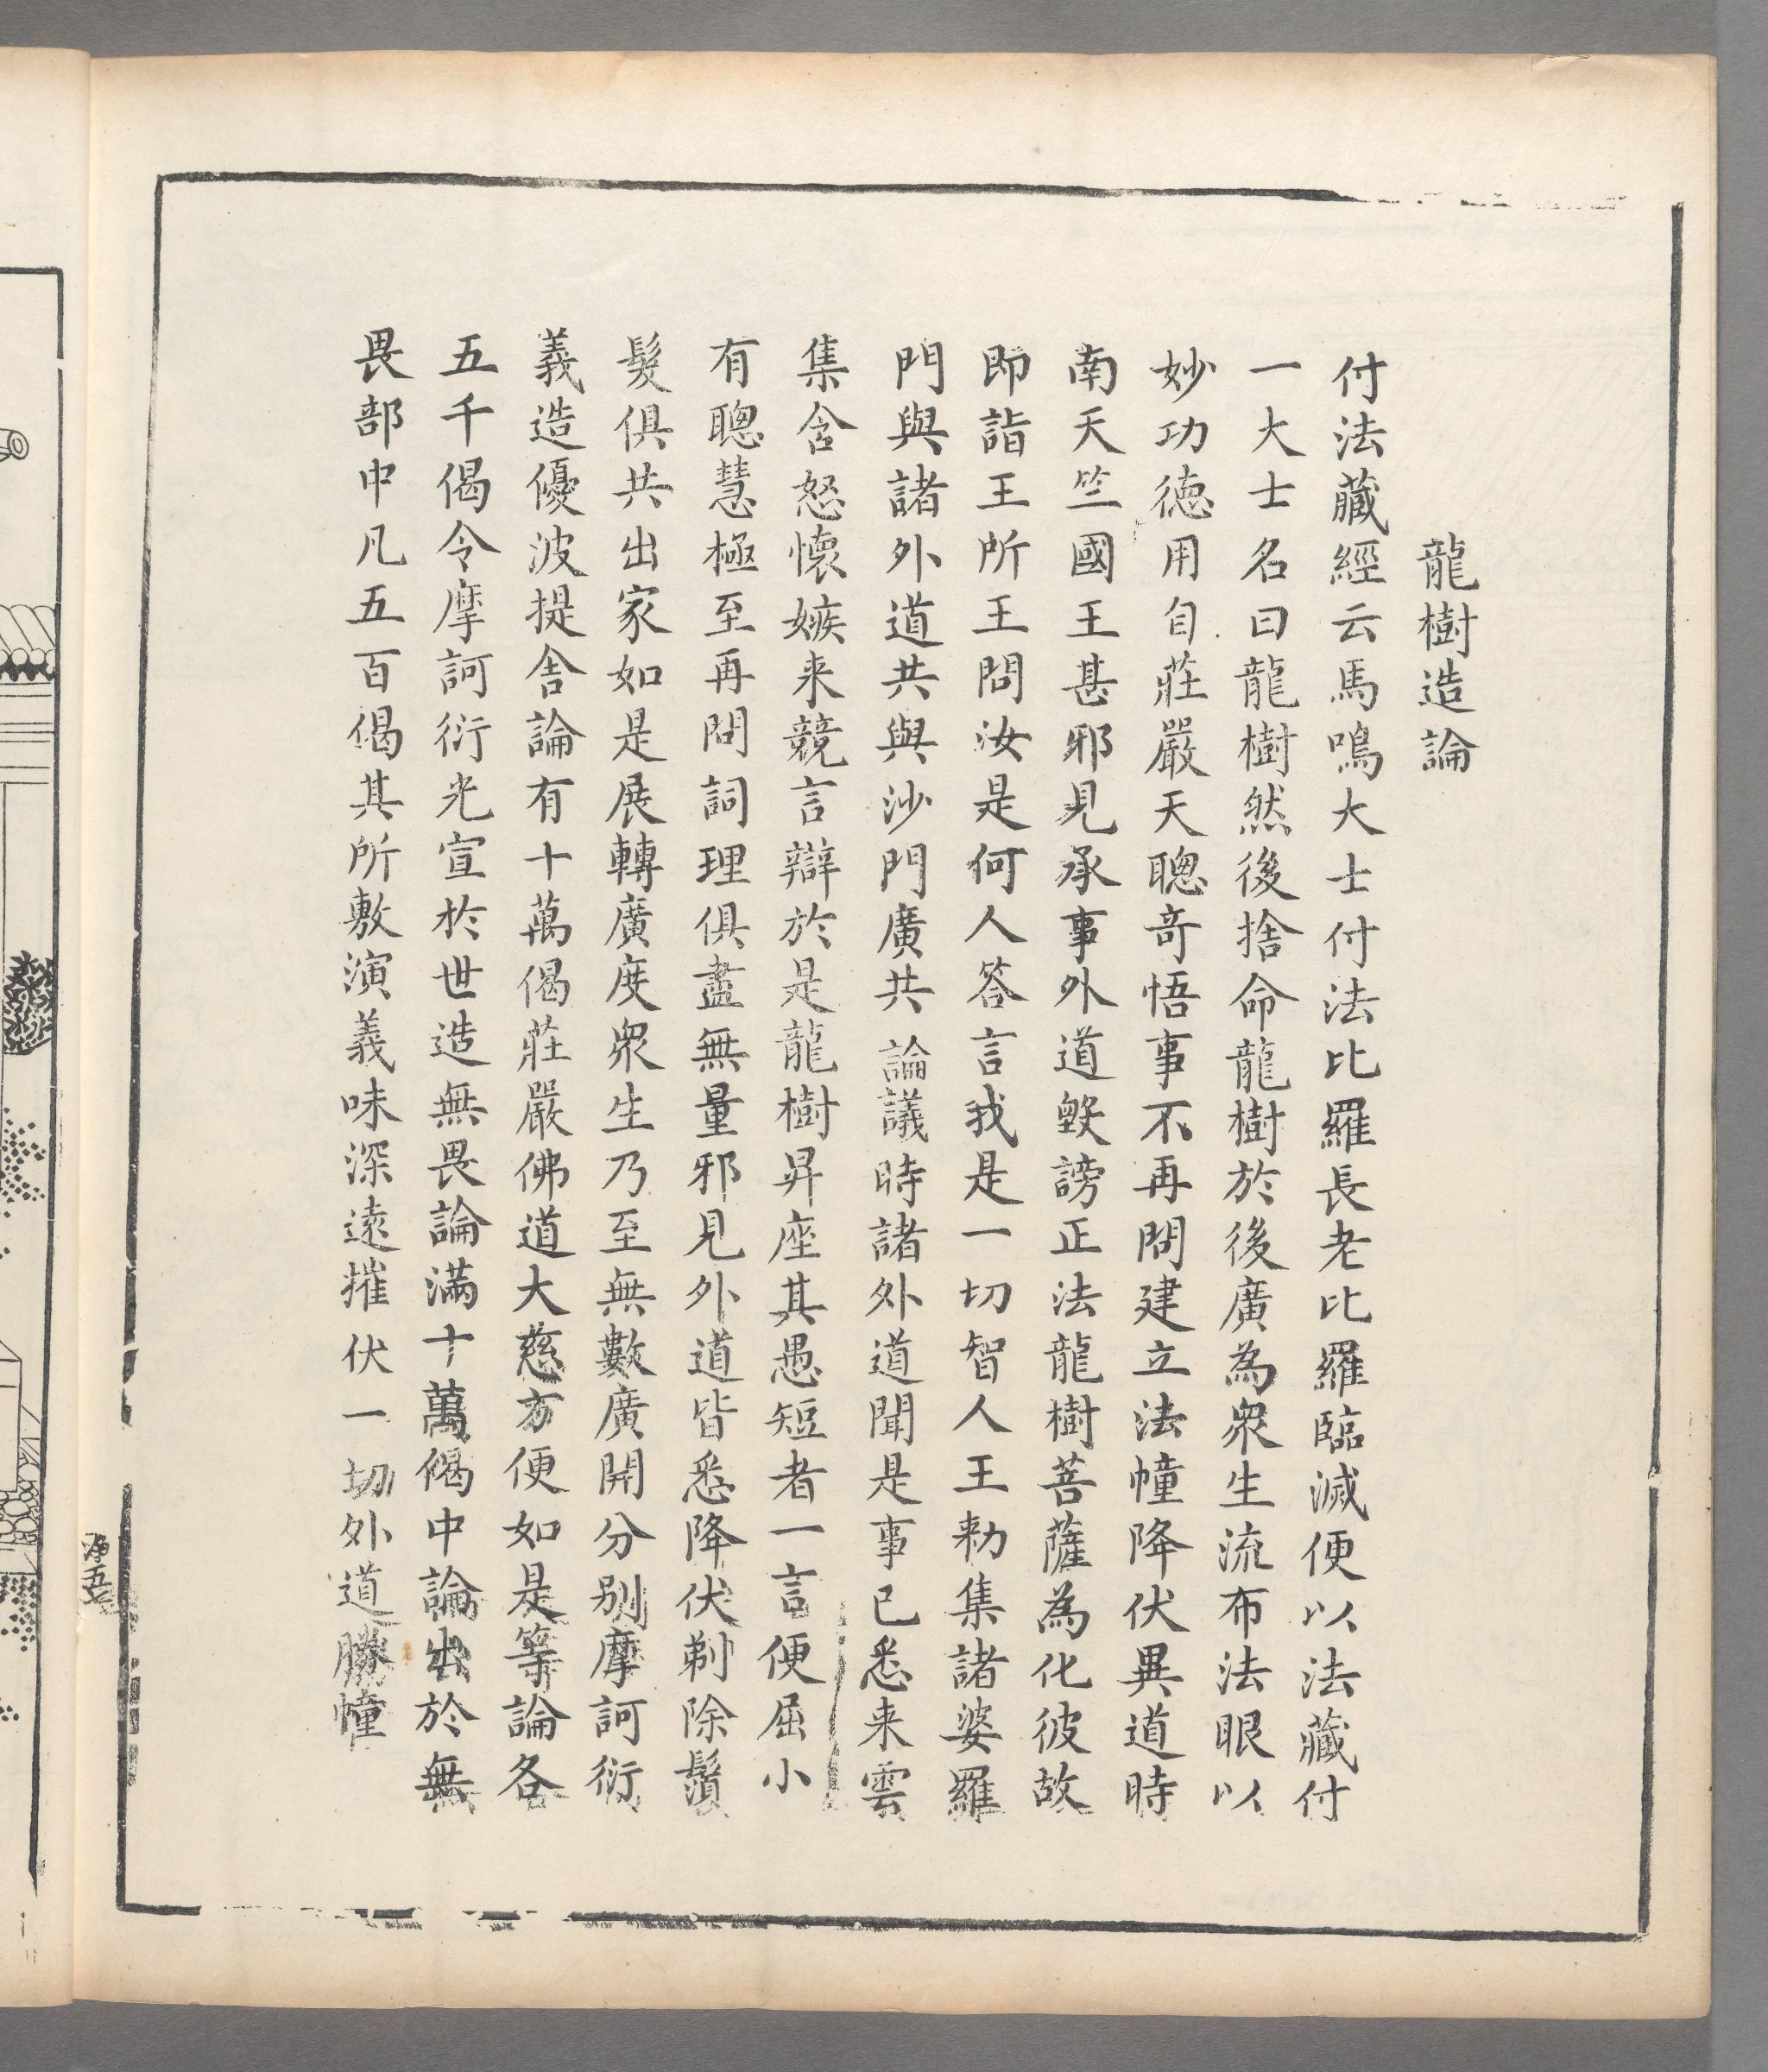 龍樹造論
付法藏經云馬鳴大士付法比羅長老比羅臨滅便以法藏付
一大士名曰龍樹然後捨命龍樹於後廣為眾生流布法眼以
妙功德用自莊嚴天聰奇悟事不再問建立法幢降伏異道時
南天竺國王甚邪見承事外道毀謗正法龍樹菩薩為化彼故
即詣王所王問汝是何人答言我是一切智人王勑集諸婆羅
門與諸外道共與沙門廣共論議時諸外道聞是事已悉来雲
集含怒懷嫉来競言辯於是龍樹昇座其愚短者一言便屈小
有聰慧極至再問詞理俱盡無量邪見外道皆悉降伏剃除鬚
髮俱共出家如是展轉廣度眾生乃至無數廣開分別摩訶衍
義造優波提舍論有十萬偈莊嚴佛道大慈方便如是等論各
五千偈令摩訶衍光宣於世造無畏論滿十萬偈中論出於無
畏部中凡五百偈其所敷演義味深遠摧伏一切外道勝幢